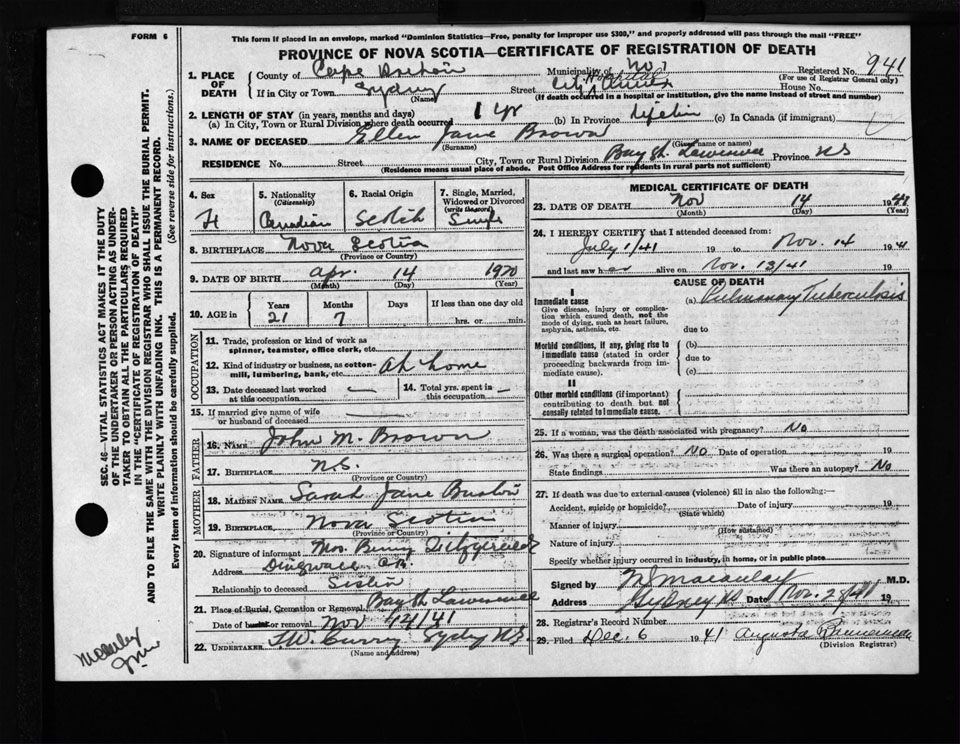 FORM 6
This form if placed in an envelope, marked "Dominion Statistics—Free, penalty for improper use $300," and properly addressed will pass through the mail "FREE"
PROVINCE OF NOVA SCOTIA—CERTIFICATE OF REGISTRATION OF DEATH
1. PLACE OF DEATH
County of Cape Breton Municipality of No. 7 Registered No. 941
(For use of Registrar General only)
If in City or Town Sydney Street City Hospital House No.
(Name) (If death occurred in a hospital or institution, give the name instead of street and number)
2. LENGTH OF STAY (in years, months and days)
(a) In City, Town or Rural Division where death occurred 1 yr (b) In Province Lifetime (c) In Canada (if immigrant)
3. NAME OF DECEASED Ellen Jane Brown
(Surname) (Given name or names)
RESIDENCE No. Street City, Town or Rural Division Bay St. Lawrence Province NS
(Residence means usual place of abode. Post Office Address for residents in rural parts not sufficient)
4. Sex
5. Nationality (Citizenship)
Canadian
6. Racial Origin
Scotch
7. Single, Married, Widowed or Divorced (write the word)
Single
8. BIRTHPLACE Nova Scotia
(Province or Country)
9. DATE OF BIRTH Apr. 14 1920
(Month) (Day) (Year)
10. AGE in Years Months Days If less than one day old
21 7 hrs. or min.
OCCUPATION
11. Trade, profession or kind of work as spinner, teamster, office clerk, etc.
12. Kind of industry or business, as cotton-mill, lumbering, bank, etc. At home
13. Date deceased last worked at this occupation —
14. Total yrs. spent in this occupation —
15. If married give name of wife or husband of deceased
FATHER
16. NAME John M. Brown
17. BIRTHPLACE N.S.
(Province or Country)
MOTHER
18. MAIDEN NAME Sarah Jane
19. BIRTHPLACE Nova Scotia
(Province or Country)
20. Signature of informant Mrs. Benny Fitzgerald
Address Dingwall C.B.
Relationship to deceased Sister
21. Place of Burial, Cremation or Removal Bay St. Lawrence
Date of burial or removal Nov
22. UNDERTAKER T.W. Curry Sydney N.S.
(Name and address)
MEDICAL CERTIFICATE OF DEATH
23. DATE OF DEATH Nov 14 1941
(Month) (Day) (Year)
24. I HEREBY CERTIFY that I attended deceased from:
July 1/41 19 to Nov. 14 1941
and last saw her alive on Nov. 13/41 19
CAUSE OF DEATH
I
Immediate cause
Give disease, injury or complication which caused death, not the mode of dying, such as heart failure, asphyxia, asthenia, etc.
(a) Pulmonary Tuberculosis
due to
Morbid conditions, if any, giving rise to immediate cause (stated in order proceeding backwards from immediate cause).
(b)
due to
(c)
II
Other morbid conditions (if important) contributing to death but not causally related to immediate cause.
25. If a woman, was the death associated with pregnancy? No
26. Was there a surgical operation? No Date of operation 19
State findings Was there an autopsy? No
27. If death was due to external causes (violence) fill in also the following:—
Accident, suicide or homicide? Date of injury 19
(State which)
Manner of injury
(How sustained)
Nature of injury
Specify whether injury occurred in industry, in home, or in public place
Signed by M.D.
Address Sydney NS Date Nov. 19
28. Registrar's Record Number
29. Filed Dec. 6 1941 Augusta
(Division Registrar)
SEC. 46—VITAL STATISTICS ACT MAKES IT THE DUTY
OF THE UNDERTAKER OR PERSON ACTING AS UNDER-
TAKER TO OBTAIN ALL THE PARTICULARS REQUIRED
IN THE "CERTIFICATE OF REGISTRATION OF DEATH"
AND TO FILE THE SAME WITH THE DIVISION REGISTRAR WHO SHALL ISSUE THE BURIAL PERMIT.
WRITE PLAINLY WITH UNFADING INK. THIS IS A PERMANENT RECORD.
Every item of information should be carefully supplied. (See reverse side for instructions.)